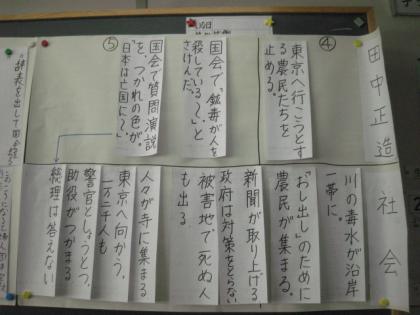 田中正造
④
東京へ行こうとす
る農民たちを
止める。
国会で、「鉱毒が人を
殺している〜。」と
さけんだ。
⑤
国会で質問演説
を、つかれの色が。
「日本は亡国に〜」
社会
川の毒水が沿岸
一帯に。
「おし出し」のために
農民が集まる。
新聞が取り上げる
政府は対策をとらない
被害地で死ぬ人
も出る
人々が寺に集まる
東京へ向かう。
一万二千人も
警官としょうとつ。
助役がつかまる
総理は答えない